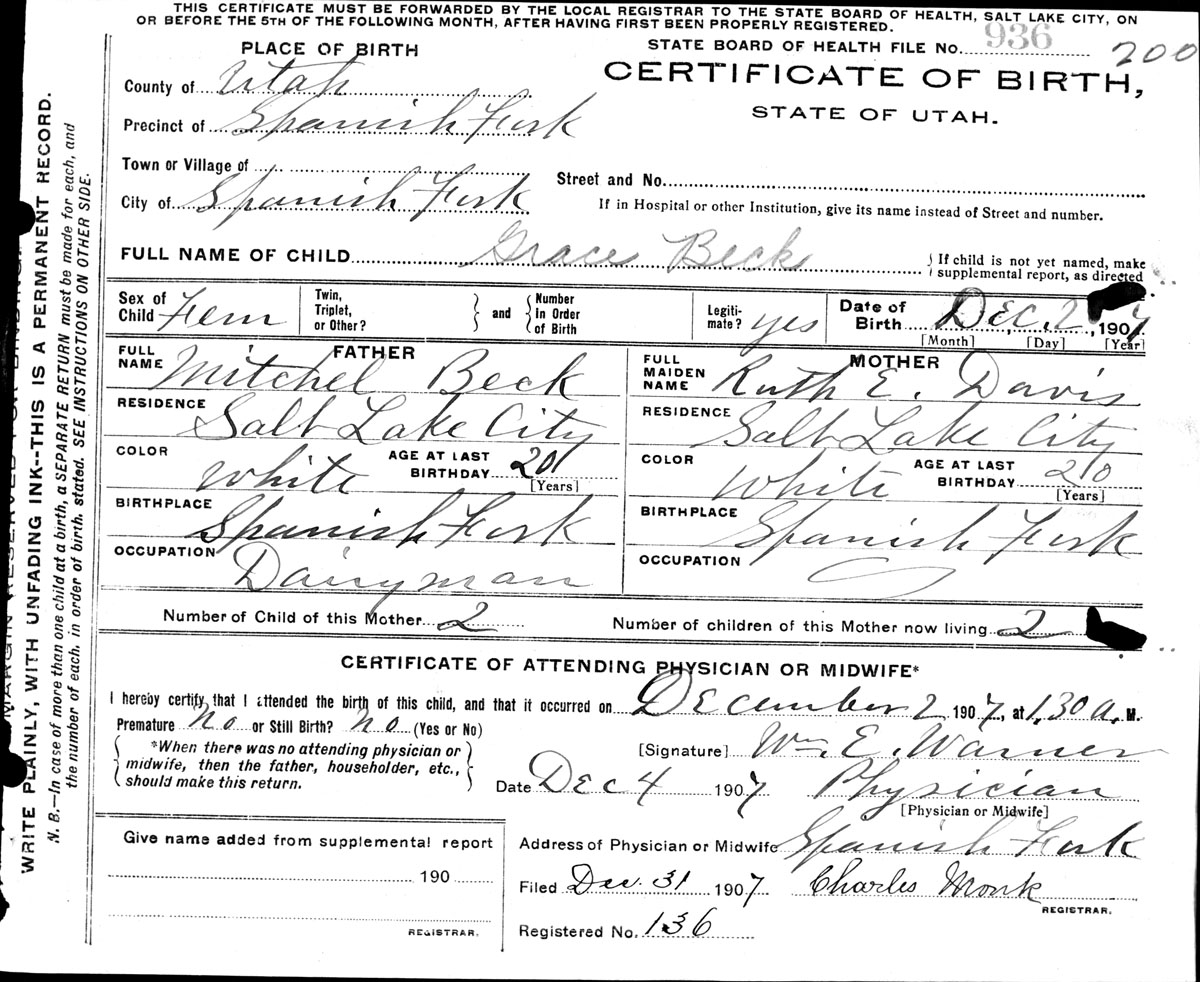 THIS CERTIFICATE MUST BE FORWARDED BY THE LOCAL REGISTRAR TO THE STATE BOARD OF HEALTH, SALT LAKE CITY, ON
OR BEFORE THE 5TH OF THE FOLLOWING MONTH, AFTER HAVING FIRST BEEN PROPERLY REGISTERED.
PLACE OF BIRTH
STATE BOARD OF HEALTH FILE No. 936 200
CERTIFICATE OF BIRTH,
STATE OF UTAH.
County of Utah
Precinct of Spanish Fork
Town or Village of
Street and No.
City of Spanish Fork
If in Hospital or other Institution, give its name instead of Street and number.
FULL NAME OF CHILD Grace Beck
If child is not yet named, make
supplemental report, as directed
Sex of Child Fem
Twin, Triplet, or Other?
and
Number In Order of Birth
Legiti-mate? yes
Date of Birth Dec. 2, 1907
[Month] [Day] [Year]
FATHER
FULL NAME Mitchel Beck
RESIDENCE Salt Lake City
COLOR White
AGE AT LAST BIRTHDAY 20
[Years]
BIRTHPLACE Spanish Fork
OCCUPATION Dairyman
MOTHER
FULL MAIDEN NAME Ruth E. Davis
RESIDENCE Salt Lake City
COLOR White
AGE AT LAST BIRTHDAY 20
[Years]
BIRTHPLACE Spanish Fork
OCCUPATION
Number of Child of this Mother 2
Number of children of this Mother now living 2
CERTIFICATE OF ATTENDING PHYSICIAN OR MIDWIFE*
I hereby certify, that I attended the birth of this child, and that it occurred on December 2 1907, at 1.30 a. M.
Premature no or Still Birth? no (Yes or No)
*When there was no attending physician or
midwife, then the father, householder, etc.,
should make this return.
[Signature] Wm. E. Warner
Date Dec 4 1907 Physician
[Physician or Midwife]
Give name added from supplemental report
190
REGISTRAR.
Address of Physician or Midwife Spanish Fork
Filed Dec. 31 1907 Charles Monk
REGISTRAR.
Registered No. 136
MARGIN RESERVED FOR BINDING.
WRITE PLAINLY, WITH UNFADING INK--THIS IS A PERMANENT RECORD.
N. B.—In case of more than one child at a birth, a SEPARATE RETURN must be made for each, and
the number of each, in order of birth, stated. SEE INSTRUCTIONS ON OTHER SIDE.